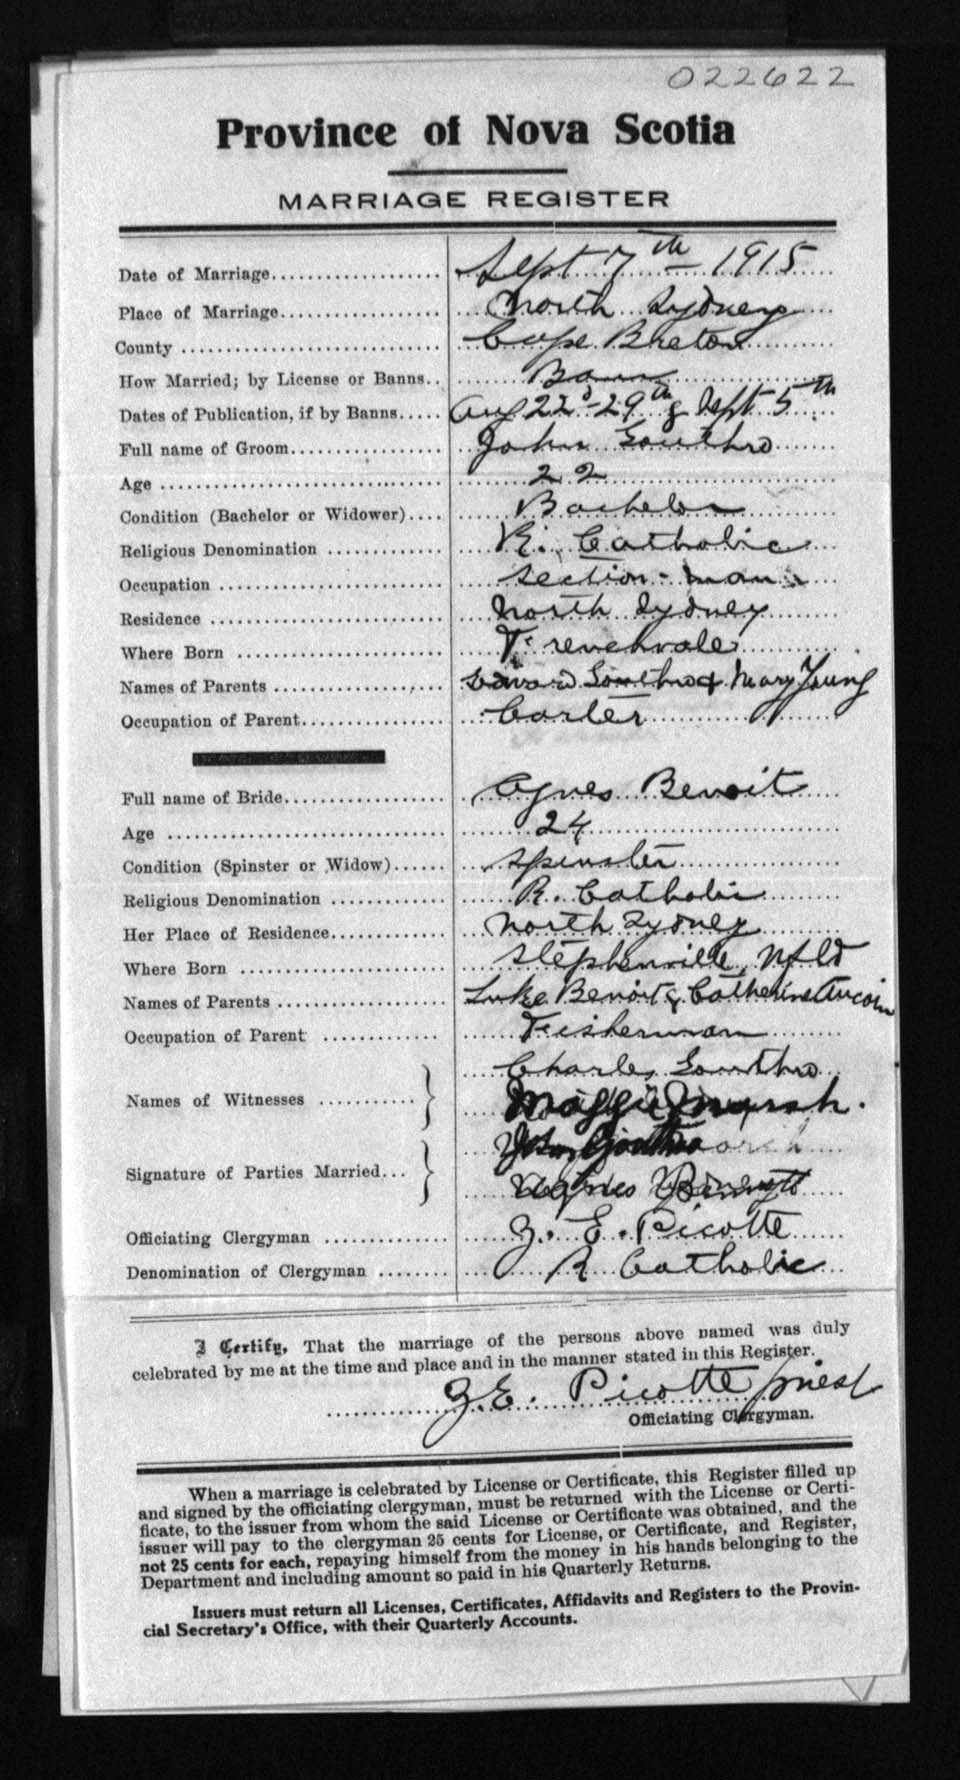 022622
Province of Nova Scotia
MARRIAGE REGISTER
Date of Marriage.................... Sept 7th 1915
Place of Marriage................... North Sydney
County .............................. Cape Breton
How Married; by License or Banns.. Banns
Dates of Publication, if by Banns..... Aug 22d-29th & Sept 5th
Full name of Groom.................. John Gouthro
Age ................................. 22
Condition (Bachelor or Widower).... Bachelor
Religious Denomination ............. R. Catholic
Occupation .......................... Section-man
Residence ........................... North Sydney
Where Born ........................ Frenchvale
Names of Parents .................. Edward Gouthro & Mary Young
Occupation of Parent................ Carter
Full name of Bride.................. Agnes Benoit
Age ................................. 24
Condition (Spinster or Widow)...... Spinster
Religious Denomination ............. R. Catholic
Her Place of Residence............. North Sydney
Where Born ........................ Stephenville, Nfld
Names of Parents .................. Luke Benoit & Catherine Aucoin
Occupation of Parent ............. Fisherman
Charles Gouthro
Names of Witnesses ........... } Maggie Marsh.
John Gouthro
Signature of Parties Married... } Agnes
Officiating Clergyman .............. Z. E. Picotte
Denomination of Clergyman ........ R Catholic
I Certify, That the marriage of the persons above named was duly
celebrated by me at the time and place and in the manner stated in this Register.
Z.E. Picotte priest
Officiating Clergyman.
When a marriage is celebrated by License or Certificate, this Register filled up
and signed by the officiating clergyman, must be returned with the License or Certi-
ficate, to the issuer from whom the said License or Certificate was obtained, and the
issuer will pay to the clergyman 25 cents for License, or Certificate, and Register,
not 25 cents for each, repaying himself from the money in his hands belonging to the
Department and including amount so paid in his Quarterly Returns.
Issuers must return all Licenses, Certificates, Affidavits and Registers to the Provin-
cial Secretary's Office, with their Quarterly Accounts.